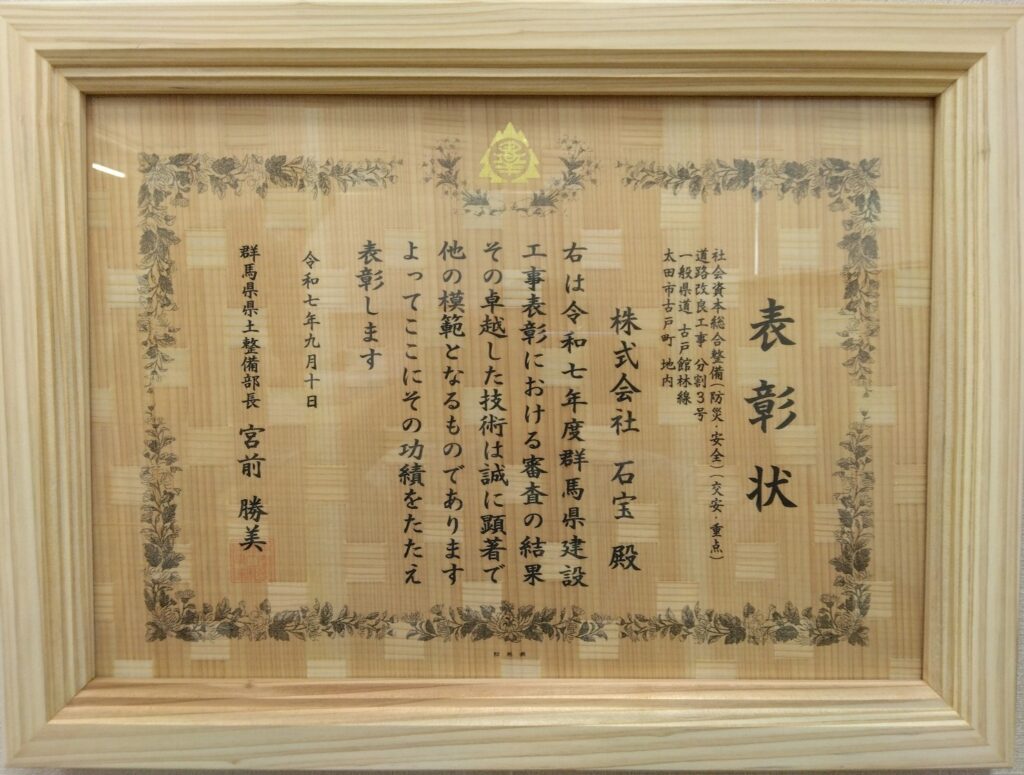 表彰状
社会資本総合整備(防災・安全)(交安・重点)
道路改良工事 分割3号
一般県道 古戸館林線
太田市古戸町 地内
株式会社 石宝 殿
右は令和七年度群馬県建設
工事表彰における審査の結果
その卓越した技術は誠に顕著で
他の模範となるものであります
よってここにその功績をたたえ
表彰します
令和七年九月十日
群馬県県土整備部長 宮前 勝美